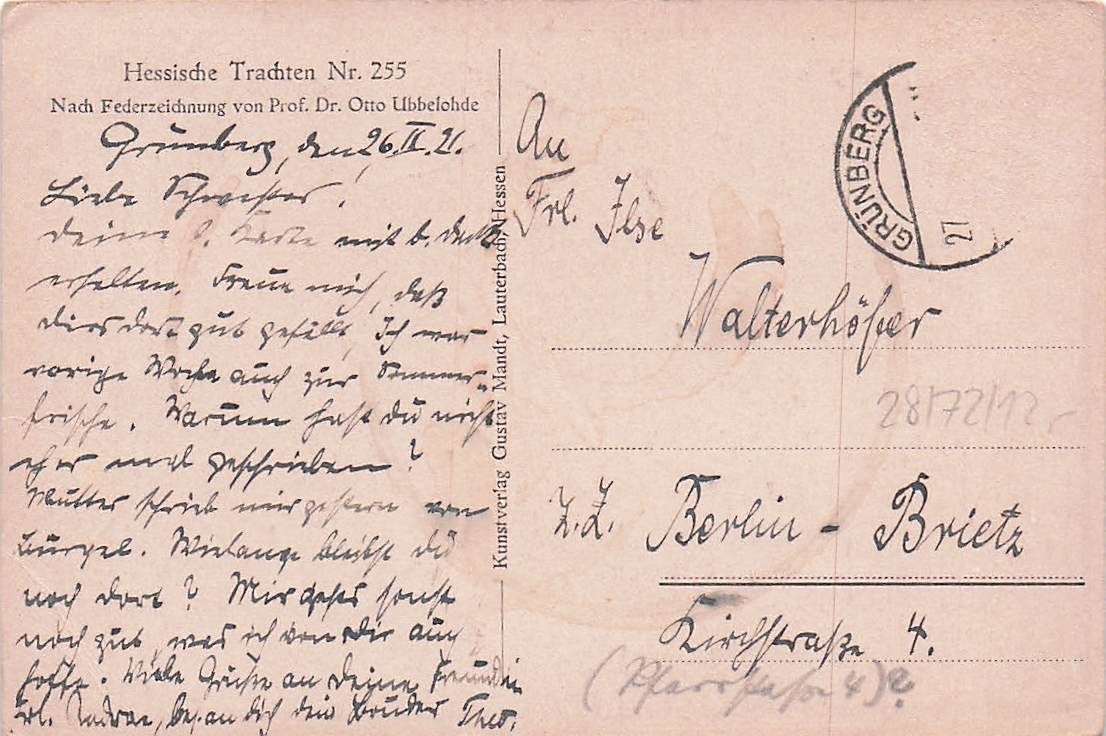 Hessische Trachten Nr. 255
Nach Federzeichnung von Prof. Dr. Otto Ubbelohde
Grünberg, den 26. II. 21.
Liebe Schwester!
Deine l. Karte mit b. Dank
erhalten. Freue mich, daß
dirs dort gut gefällt, Ich war
vorige Woche auch zur Sommer-
frische. Warum hast du nicht
eher mal geschrieben?
Mutter schrieb mir gestern von
Bürgel. Wielange bleibst du
noch dort? Mir gehts sonst
noch gut, was ich von dir auch
hoffe. Viele Grüße an deine Freundin
Frl. bes. an dich dein Bruder Theo.
Kunstverlag Gustav Mandt, Lauterbach, Hessen
An
Frl. Ilse
Walterhöfer
z. Z. Berlin - Brietz
Kirchstraße 4.
(Pfarrstraße 4)?
GRÜNBERG
27
28/72/12,-